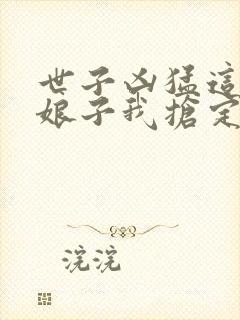 世子凶猛這
娘子我搶定
浣浣